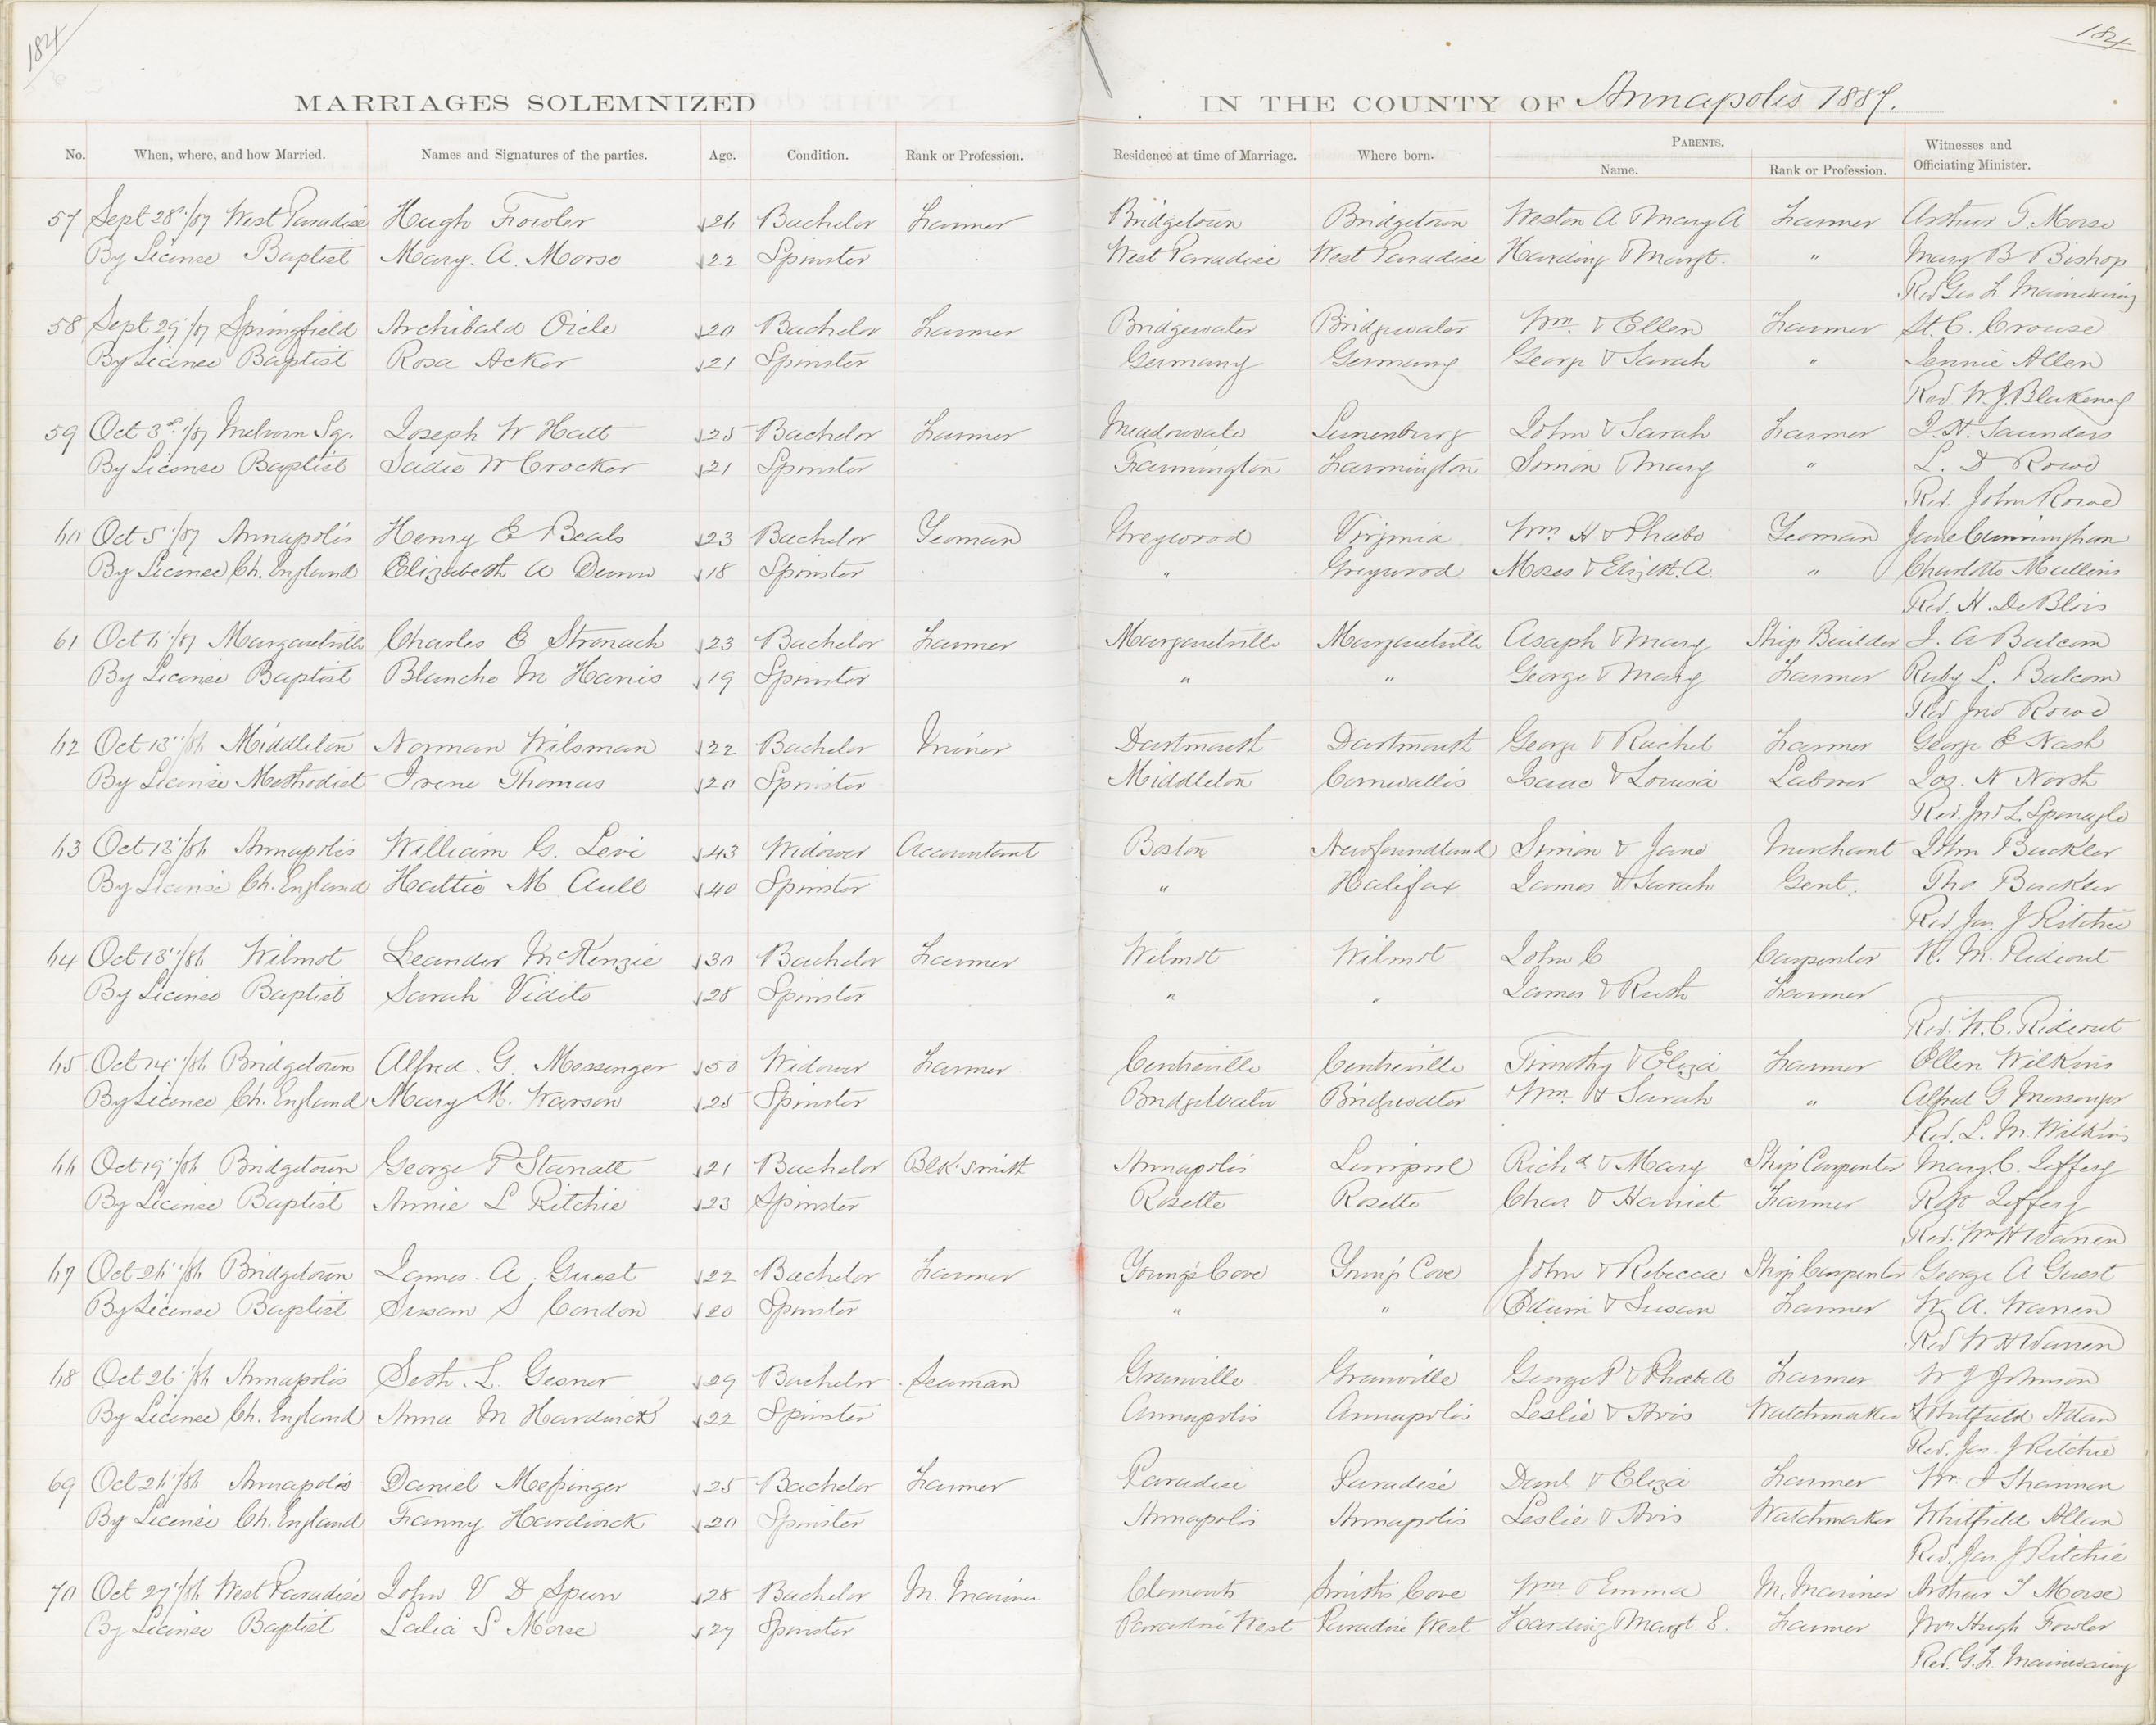 184
184
MARRIAGES SOLEMNIZED IN THE COUNTY OF Annapolis 1887.
No. When, where, and how Married. Names and Signatures of the parties. Age. Condition. Rank or Profession. Residence at time of Marriage. Where born. PARENTS. Name. Rank or Profession. Witnesses and Officiating Minister.
57 Sept 28"/87 West Paradise Hugh Fowler 26 Bachelor Farmer Bridgetown Bridgetown Weston A & Mary A Farmer Arthur T. Morse
By License Baptist Mary. A. Morse 22 Spinster West Paradise West Paradise Harding & Margt. " Mary B Bishop
Rev Geo L Mainwaring
58 Sept 29"/87 Springfield Archibald Oicle 20 Bachelor Farmer Bridgewater Bridgewater Wm. & Ellen Farmer St. C. Crouse
By License Baptist Rosa Acker 21 Spinster Germany Germany George & Sarah " Jennie Allen
Rev W. J. Blakeney
59 Oct 3rd/87 Melvern Sq. Joseph W Hatt 25 Bachelor Farmer Meadowvale Lunenburg John & Sarah Farmer J. H. Saunders
By License Baptist Sadie W Crocker 21 Spinster Farmington Farmington Simon & Mary " L. D Rowe
Rev. John Rowe
60 Oct 5"/87 Annapolis Henry E Beals 23 Bachelor Yeoman Greywood Virginia Wm H & Phoebe Yeoman Jane Cunningham
By License Ch. England Elizabeth A Dunn 18 Spinster " Greywood Moses & Elizth. A. " Charlotte Mullins
Rev. H. DeBlois
61 Oct 6"/87 Margaretville Charles E Stronach 23 Bachelor Farmer Margaretville Margaretville Asaph & Mary Ship Builder J. A Balcom
By License Baptist Blanche M Harris 19 Spinster " " George & Mary Farmer Ruby L. Balcom
Rev Jno Rowe
62 Oct 13"/86 Middleton Norman Wilsman 22 Bachelor Miner Dartmouth Dartmouth George & Rachel Farmer George E Nash
By License Methodist Irene Thomas 20 Spinster Middleton Cornwallis Isaac & Louisa Laborer Jos. N North
Rev. Jno L. Sponagle
63 Oct 13"/86 Annapolis William G. Levi 43 Widower Accountant Boston Newfoundland Simon & Jane Merchant John Buckler
By License Ch. England Hattie M Aull 40 Spinster " Halifax James & Sarah Gent. Tho. Buckler
Rev. Jas. J Ritchie
64 Oct 13"/86 Wilmot Leander McKenzie 30 Bachelor Farmer Wilmot Wilmot John C Carpenter K. M. Rideout
By License Baptist Sarah Vidito 28 Spinster " " James & Ruth Farmer
Rev. W. C. Rideout
65 Oct 14"/86 Bridgetown Alfred. G. Messenger 50 Widower Farmer Centreville Centreville Timothy & Eliza Farmer Ellen Wilkins
By License Ch. England Mary M. Warson 25 Spinster Bridgewater Bridgewater Wm. H Sarah " Alfred G Messenger
Rev. L. M. Wilkins
66 Oct 19"/86 Bridgetown George P Starratt 21 Bachelor Blk. smith Annapolis Liverpool Richd & Mary Ship Carpenter Mary. C. Jeffery
By License Baptist Annie L Ritchie 23 Spinster Rosette Rosette Chas & Harriet Farmer Robt Jeffery
Rev. Wm H Warren
67 Oct 26"/86 Bridgetown James. A. Guest 22 Bachelor Farmer Young's Cove Young's Cove John & Rebecca Ship Carpenter George A Guest
By License Baptist Susan S Condon 20 Spinster " " Edwin & Susan Farmer W. A. Warren
Rev W H Warren
68 Oct 26"/86 Annapolis Seth. L. Gesner 29 Bachelor Seaman Granville Granville George P & Phoebe A Farmer W J Johnson
By License Ch. England Anna M Hardwick 22 Spinster Annapolis Annapolis Leslie & Avis Watchmaker Whitfield Allan
Rev. Jas. J Ritchie
69 Oct 26"/86 Annapolis Daniel Messinger 25 Bachelor Farmer Paradise Paradise Danl & Eliza Farmer Wm J Shannon
By License Ch. England Fanny Hardwick 20 Spinster Annapolis Annapolis Leslie & Avis Watchmaker Whitfield Allan
Rev. Jas. J Ritchie
70 Oct 27"/86 West Paradise John V D Spurr 28 Bachelor M. Mariner Clements Smiths Cove Wm & Emma M. Mariner Arthur T Morse
By License Baptist Lalia S Morse 27 Spinster Paradise West Paradise West Harding & Margt. E. Farmer Mrs Hugh Fowler
Rev. G. L. Mainwaring